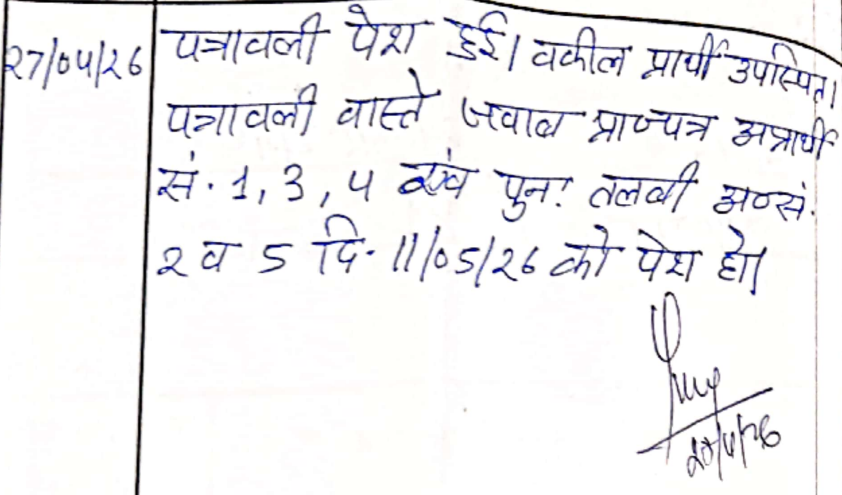 27/04/26 पत्रावली पेश हुई। वकील प्रार्थी उपस्थित।
पत्रावली वास्ते जवाब प्रा०पत्र अप्रार्थी
सं. 1, 3, 4 एवं पुनः तलबी अ०सं.
2 व 5 दि. 11/05/26 को पेश हो।